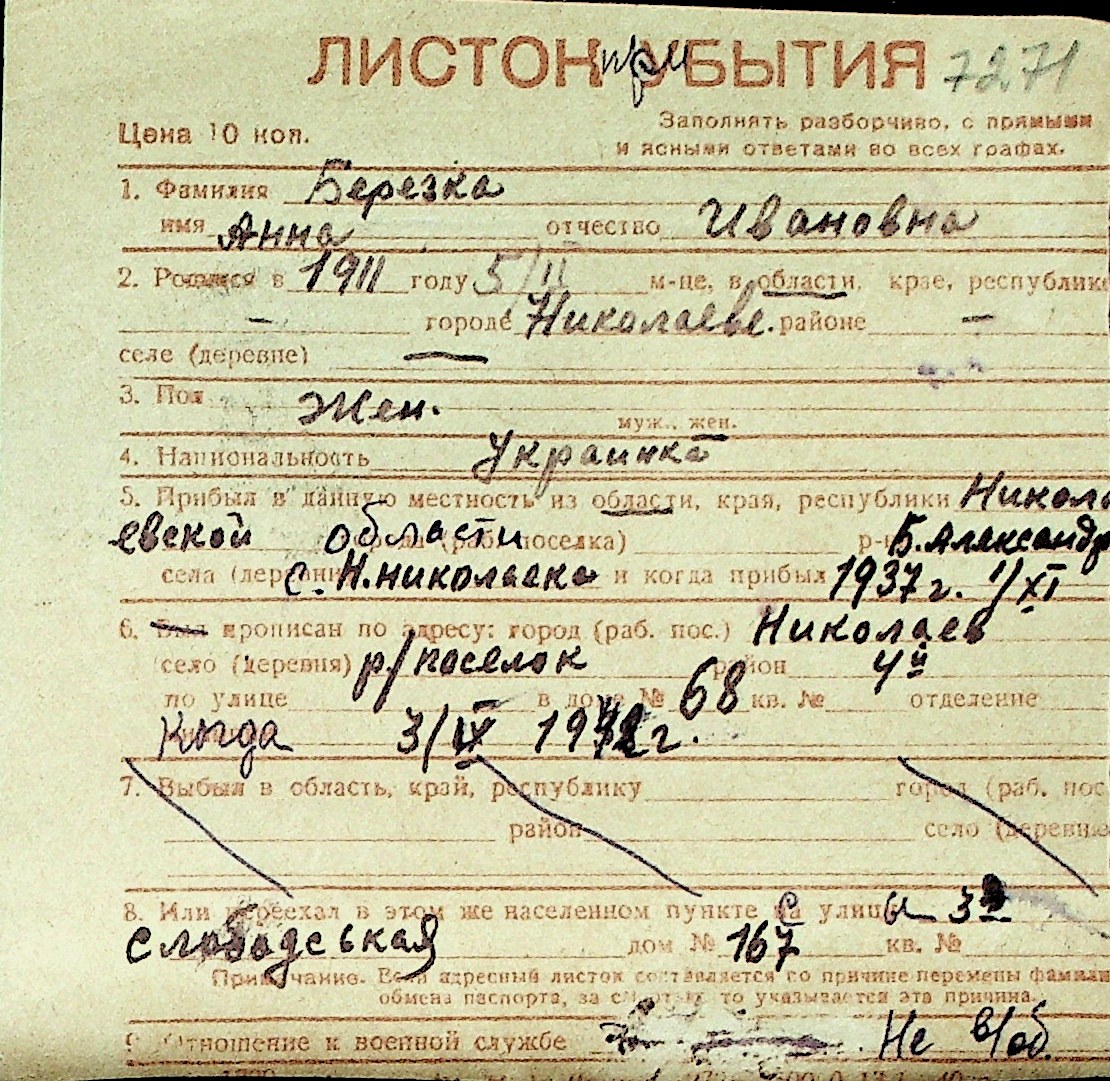 ЛИСТОК при УБЫТИЯ 7271
Цена 10 коп.
Заполнять разборчиво, с прямыми
и ясными ответами во всех графах.
1. Фамилия Березка
имя Анна отчество Ивановна
2. Родился в 1911 году 5/II м-це, в области, крае, республике
— городе Николаеве. районе —
селе (деревне) —
3. Пол Жен.
муж., жен.
4. Национальность Украинка
5. Прибыл в данную местность из области, края, республики Никола
евской области (раб. поселка) р-н Б. Александр
села (деревни) с. Н. Николаевка и когда прибыл 1937 г. 1/XI
6. Был прописан по адресу: город (раб. пос.) Николаев
село (деревня) р/поселок район 4й
по улице в доме № 68 кв. № отделение
Когда 3/IX 194 г.
7. Выбыл в область, край, республику город (раб. пос
район село (деревне
8. Или переехал в этом же населенном пункте на улицы 3я
Слободськая дом № 167 кв. №
Примечание. Если адресный листок составляется по причине перемены фамилии
обмена паспорта, за смертью, то указывается эта причина.
9. Отношение к военной службе Не в/об.